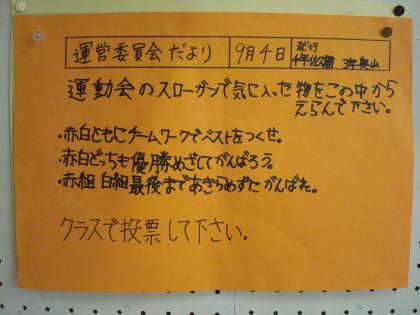 運営委員会だより 9月4日 発行
運動会のスローガンで気に入った物をこの中から
えらんで下さい。
・赤白ともにチームワークでベストをつくせ。
・赤白どっちも優勝めざしてがんばろう。
・赤組 白組最後まであきらめずにがんばれ。
クラスで投票して下さい。